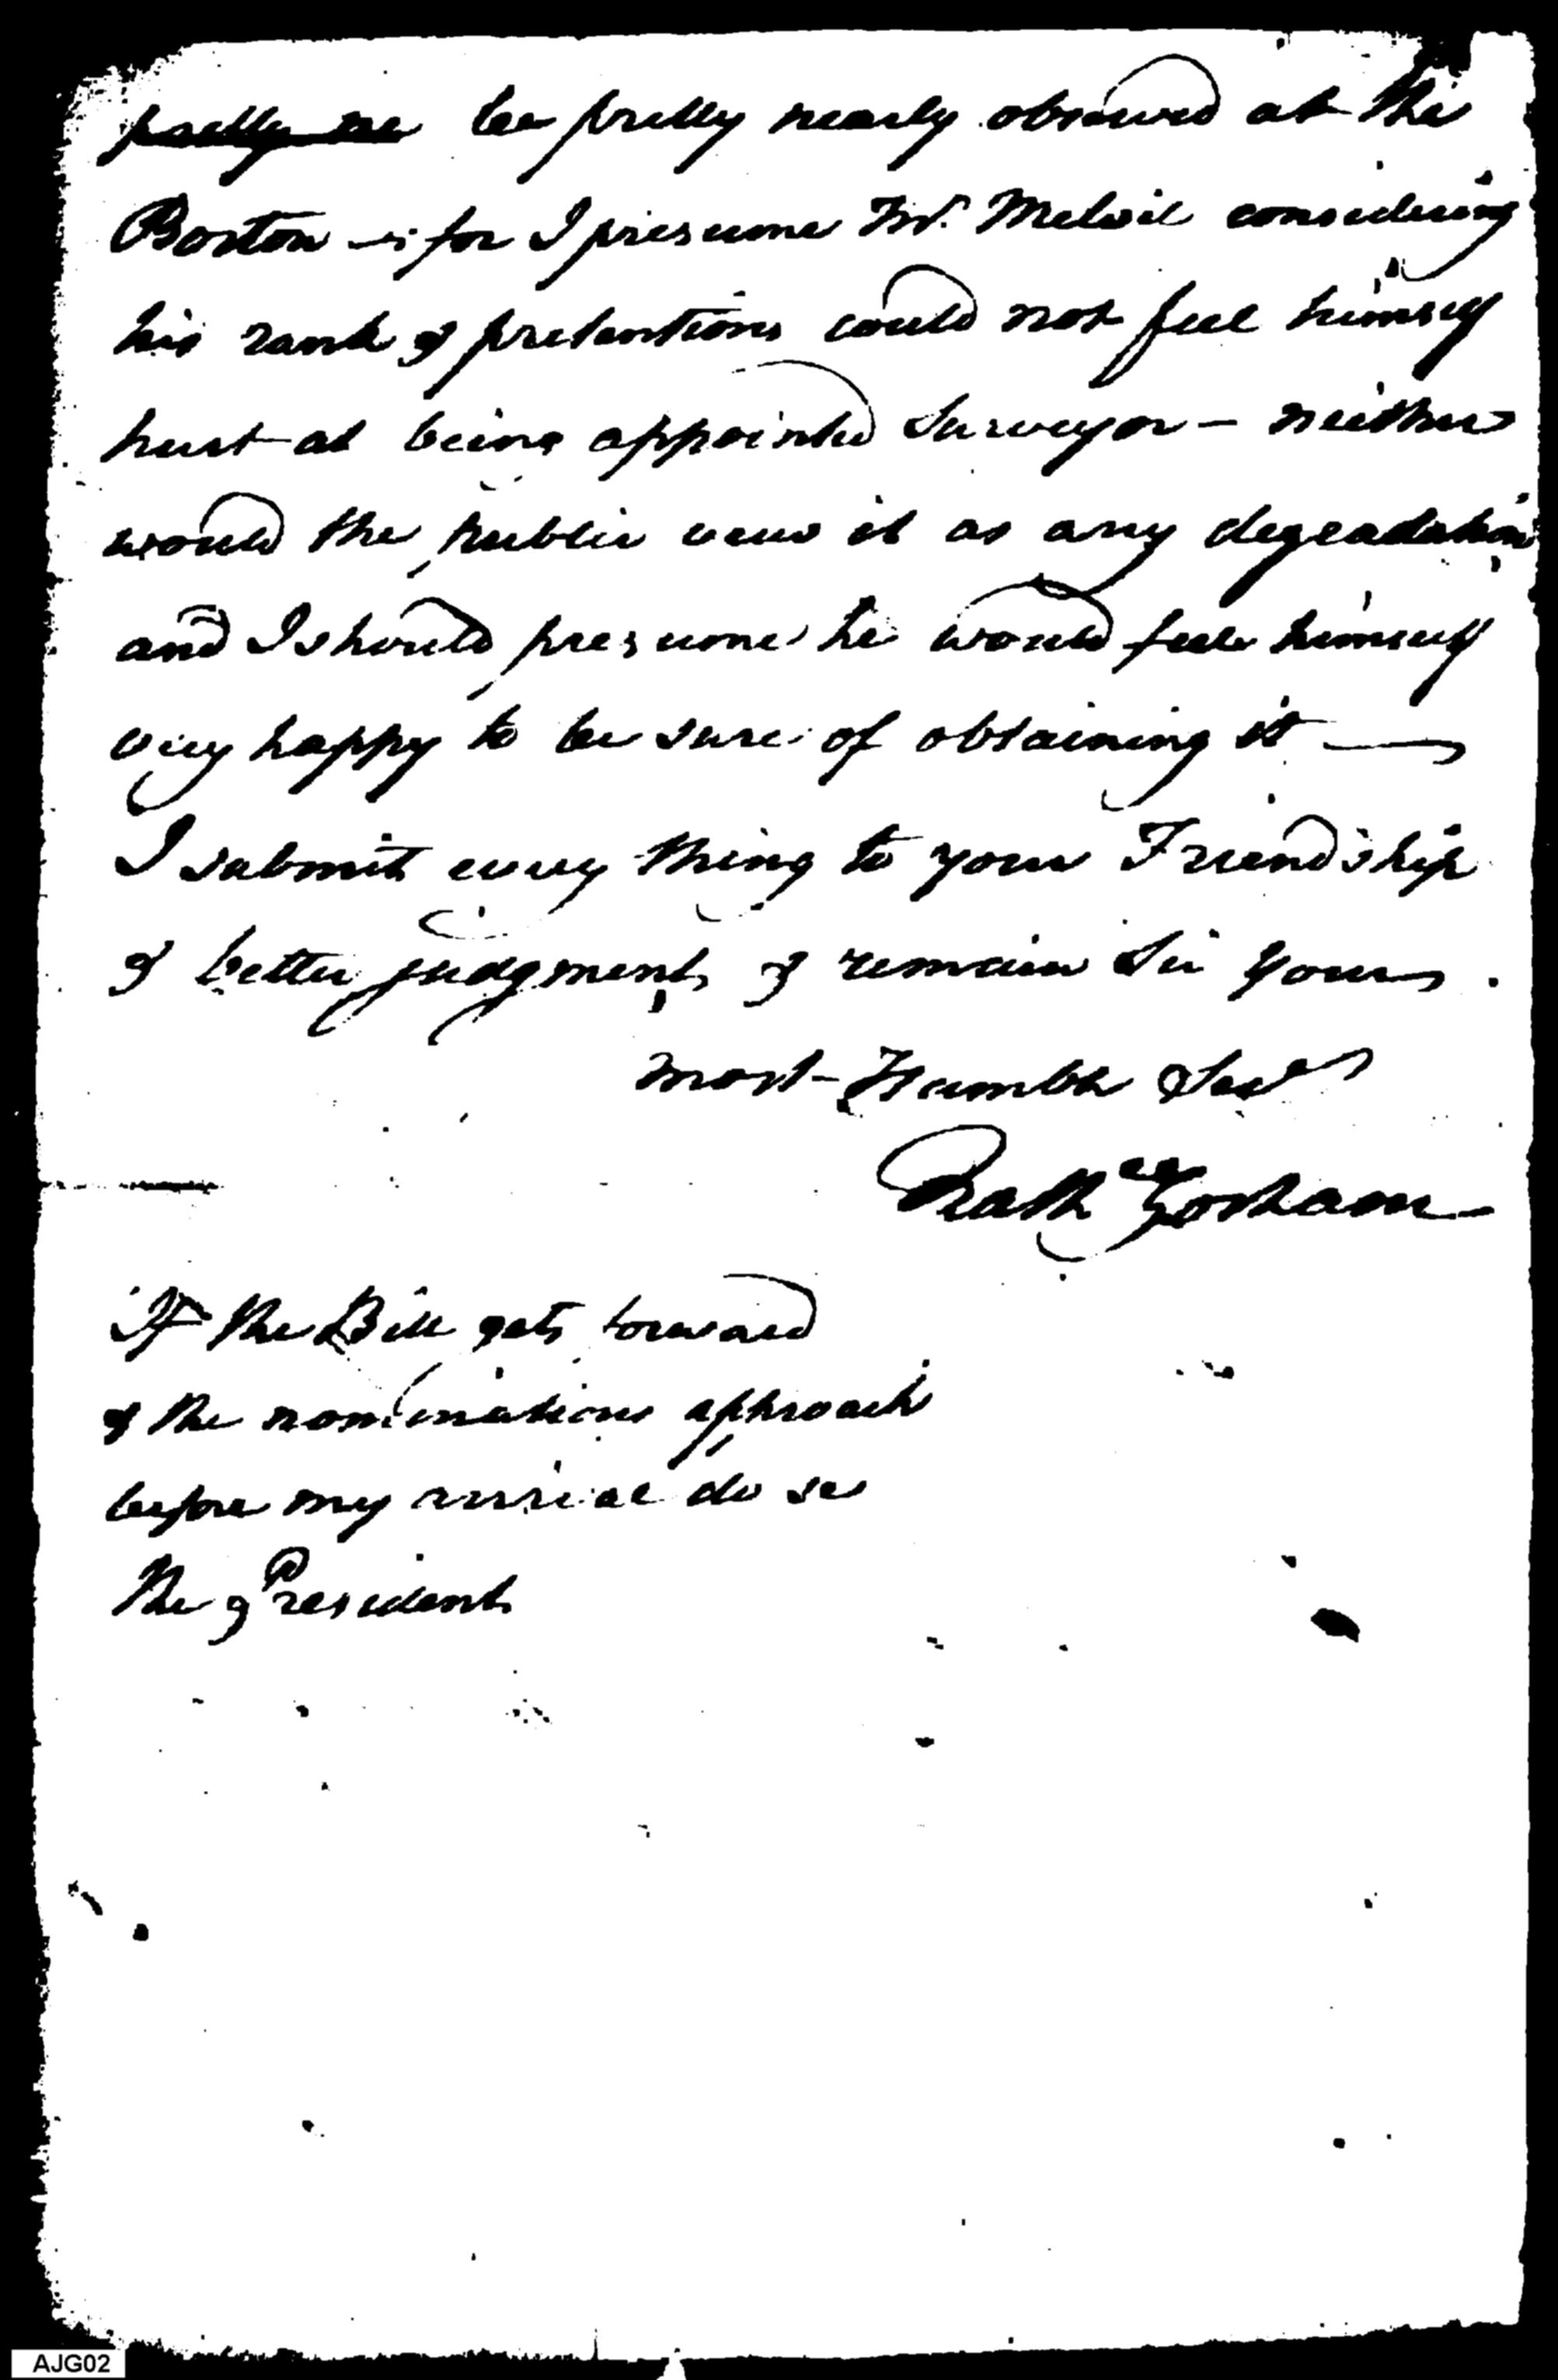 pretty ne be pretty nearly observed at the
Boston — for I presume Mr. Melvil considering
his rank & pretentions could not feel himself
hurt at being appointed Surveyor — neither
would the public view it as any degradation
and I should presume he would feel himself
very happy to be sure of obtaining it —
I submit every thing to your Friendship
& better judgment, & remain Sir your
most Humble Sert
Nath Gorham
If the Bill gets forward
& the nominations approach
before my arrival do se
the President
AJG02